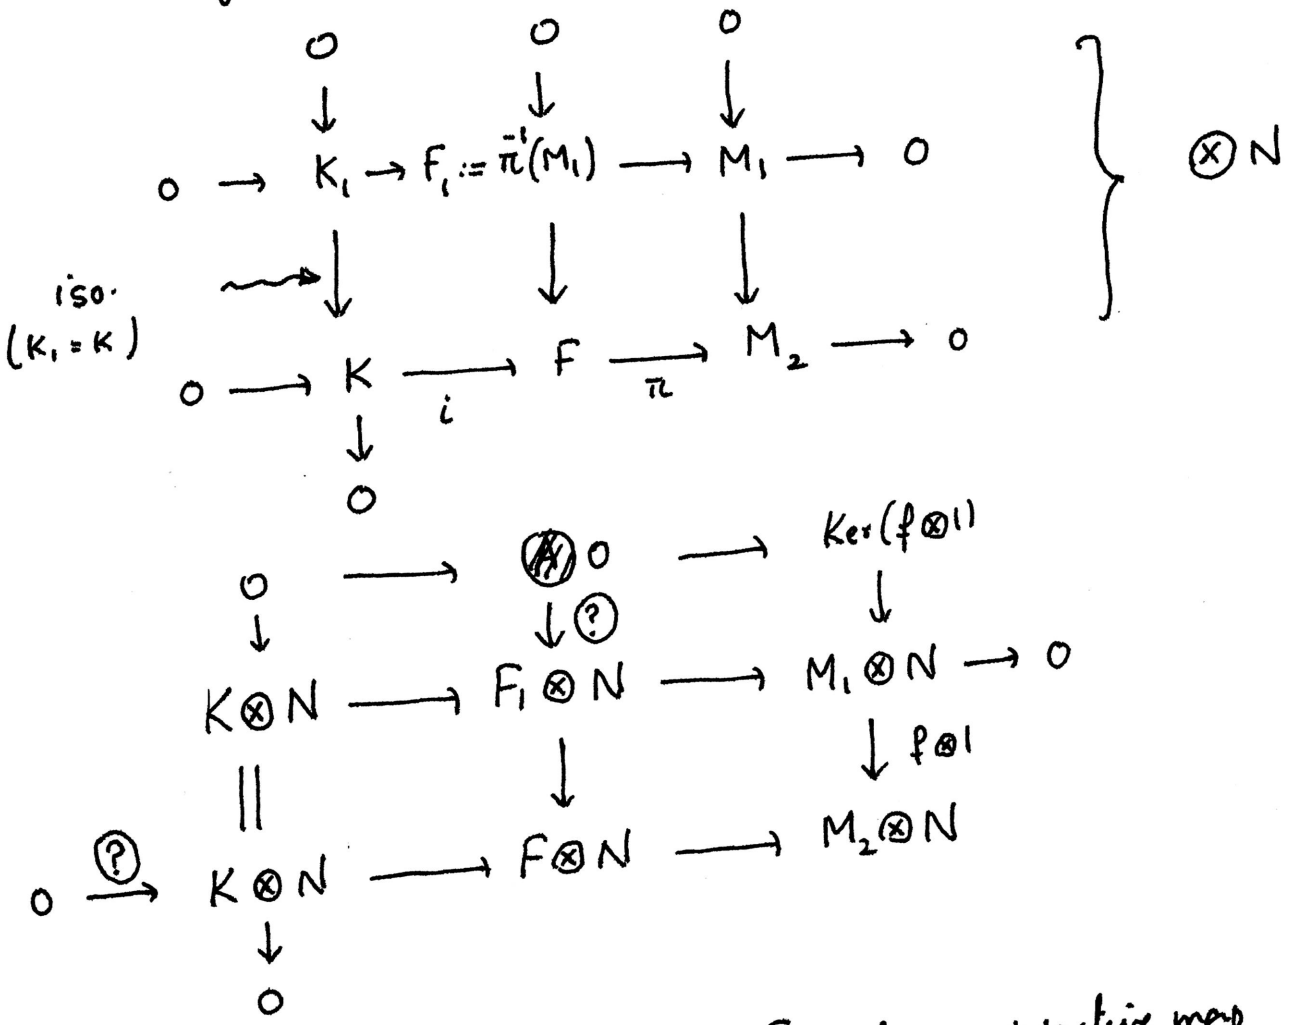 0 0 0
0 → K₁ → F₁ := π⁻¹(M₁) → M₁ → 0
⊗ N
iso.
(K₁ = K)
0 → K → F → M₂ → 0
i π
0
0 → 0 → Ker(f⊗1)
?
K⊗N → F₁⊗N → M₁⊗N → 0
f⊗1
?
0 → K⊗N → F⊗N → M₂⊗N
0
map